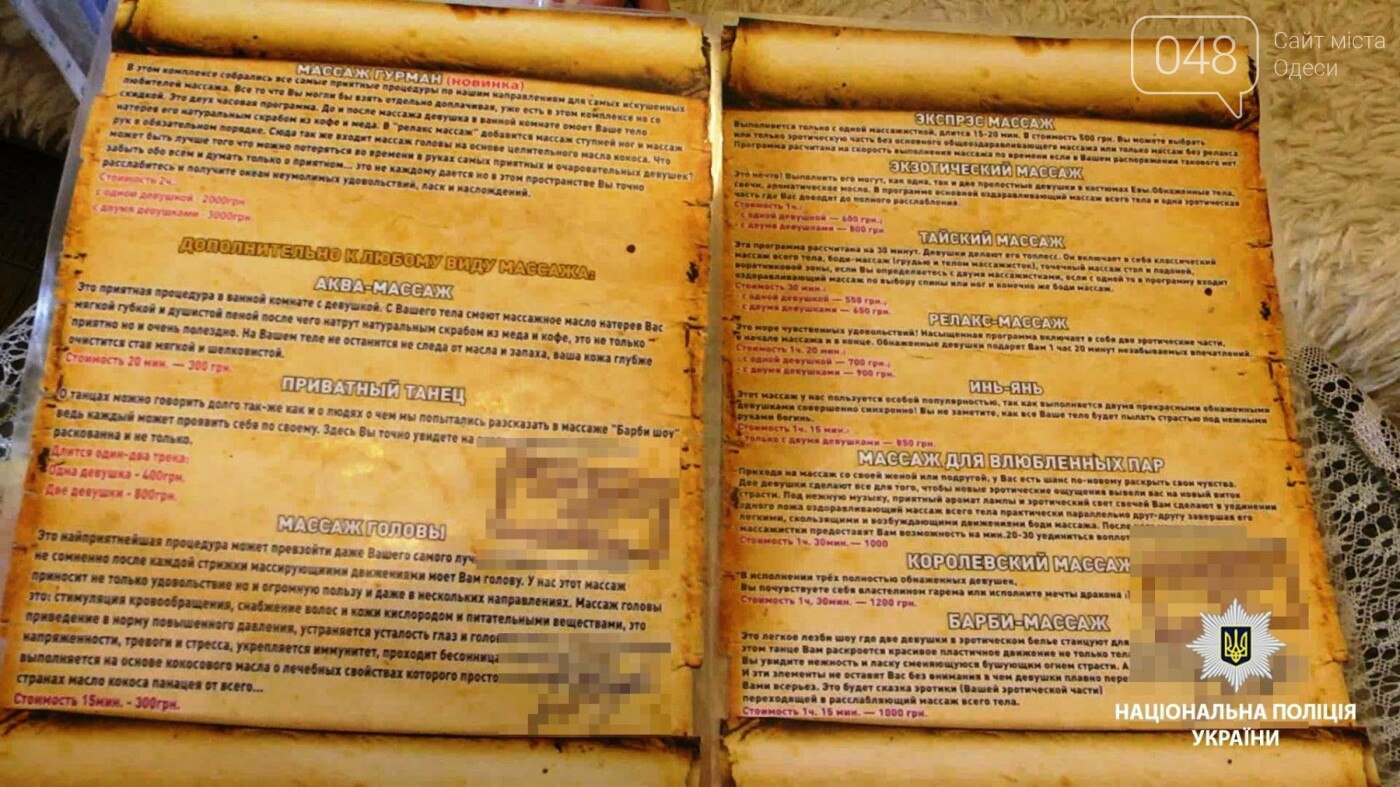 МАССАЖ ГУРМАН (новинка)
В этом комплексе собрались все самые приятные процедуры по нашим направлениям для самых искушенных
любителей массажа. Все то что Вы могли бы взять отдельно доплачивая, уже есть в этом комплексе но со
скидкой. Это двух часовая программа. До и после массажа девушка в ванной комнате омоет Ваше тело
натерев его натуральным скрабом из кофе и меда. В "релакс массаж" добавится массаж ступней ног и массаж
рук в обязательном порядке. Сюда так же входит массаж головы на основе целительного масла кокоса. Что
может быть лучше того что можно потеряться во времени в руках самых приятных и очаровательных девушек?
забыть обо всем и думать только о приятном... это не каждому дается но в этом пространстве Вы точно
расслабитесь и получите океан неумолимых удовольствий, ласк и наслождений.
Стоимость 2ч.:
с одной девушкой - 2000грн.
с двумя девушками - 3000грн.
ДОПОЛНИТЕЛЬНО К ЛЮБОМУ ВИДУ МАССАЖА:
АКВА-МАССАЖ
Это приятная процедура в ванной комнате с девушкой. С Вашего тела смоют массажное масло натерев Вас
мягкой губкой и душистой пеной после чего натрут натуральным скрабом из меда и кофе, это не только
приятно но и очень полездно. На Вашем теле не останится не следа от масла и запаха, ваша кожа глубже
очистится став мягкой и шелковистой.
Стоимость 20 мин. — 300 грн.
ПРИВАТНЫЙ ТАНЕЦ
О танцах можно говорить долго так-же как и о людях о чем мы попытались разсказать в массаже "Барби шоу"
ведь каждый может проявить себя по своему. Здесь Вы точно увидете на
раскованна и не только.
Длится один-два трека:
Одна девушка - 400грн.
Две девушки - 800грн.
МАССАЖ ГОЛОВЫ
Это найприятнейшая процедура может превзойти даже Вашего самого луч
не сомненно после каждой стрижки массирующими движениями моет Вам голову. У нас этот массаж
приносит не только удовольствие но и огромную пользу и даже в нескольких направлениях. Массаж головы
это: стимуляция кровообращения, снабжение волос и кожи кислородом и питательными веществами, это
приведение в норму повышенного давления, устраняется усталость глаз и голо
напряженности, тревоги и стресса, укрепляется иммунитет, проходит бесонниц
выполняется на основе кокосового масла о лечебных свойствах которого просто
странах масло кокоса панацея от всего...
Стоимость 15мин. - 300грн.
ЭКСПРЭС МАССАЖ
Выполняется только с одной массажисткой, длится 15-20 мин. В стоимость 500 грн. Вы можете выбрать
или только эротическую часть без основного общеоздаравливающего массажа или только массаж без релакса
Программа расчитана на скорость выполнения массажа по времени если в Вашем распоряжении такового нет.
ЭКЗОТИЧЕСКИЙ МАССАЖ
Это нечто! Выполнить его могут, как одна, так и две прелестные девушки в костюмах Евы.Обнаженные тела,
свечи, ароматическое масло. В программе основной оздаравливающий массаж всего тела и одна эротическая
часть где Вас доводят до полного расслабления.
Стоимость 1ч.:
- с одной девушкой — 600 грн.;
- с двумя девушками — 800 грн
ТАЙСКИЙ МАССАЖ
Эта программа рассчитана на 30 минут. Девушки делают его топлесс. Он включает в себя классический
массаж всего тела, боди-массаж (грудью и телом массажисток), точечный массаж стоп и ладоней,
воротниковой зоны, если Вы определяетесь с двумя массажистками, если с одной то в программу входит
оздаравливающий массаж по выбору спины или ног и конечно же боди массаж.
Стоимость 30 мин.:
- с одной девушкой — 550 грн.;
- с двумя девушками — 650 грн.
РЕЛАКС-МАССАЖ
Это море чувственных удовольствий! Насыщенная программа включает в себя две эротические части,
в начале массажа и в конце. Обнаженные девушки подарят Вам 1 час 20 минут незабываемых впечатлений.
Стоимость 1ч. 20 мин.:
- с одной девушкой — 700 грн.;
- с двумя девушками — 900 грн.
ИНЬ-ЯНЬ
Этот массаж у нас пользуется особой популярностью, так как выполняется двумя прекрасными обнаженными
девушками совершенно синхронно! Вы не заметите, как все Ваше тело будет пылать страстью под нежными
руками богинь.
Стоимость 1ч. 15 мин.:
только с двумя девушками — 850 грн.
МАССАЖ ДЛЯ ВЛЮБЛЕННЫХ ПАР
Приходя на массаж со своей женой или подругой, у Вас есть шанс по-новому раскрыть свои чувства.
Две девушки сделают все для того, чтобы новые эротические ощущения вывели вас на новый виток
страсти. Под нежную музыку, приятный аромат лампы и эротический свет свечей Вам сделают в уединении
одного ложа оздоравливающий массаж всего тела практически параллельно друг-другу завершая его
легкими, скользящими и возбуждающими движениями боди массажа. После
массажистки предоставят Вам возможность на мин.20-30 уединиться воплот
Стоимость 1ч. 30мин.— 1000
КОРОЛЕВСКИЙ МАССАЖ
"В исполнении трёх полностью обнаженных девушек,
Вы почувствуете себя властелином гарема или исполните мечты дракона :)
Стоимость 1ч, 30мин. — 1200 грн.
БАРБИ-МАССАЖ
Это легкое лезби шоу где две девушки в эротическом белье станцуют для
этом танце Вам раскроется красивое пластичное движение не только тела
Вы увидите нежность и ласку сменяющуюся бушующим огнем страсти. А
И эти элементы не оставят Вас без внимания в чем девушки плавно пере
Вами всерьез. Это будет сказка эротики (Вашей эротической части)
переходящей в расслабляющий массаж всего тела.
Стоимость 1ч. 15 мин. — 1000 грн.
048
Сайт міста
Одеси
НАЦІОНАЛЬНА ПОЛІЦІЯ
УКРАЇНИ